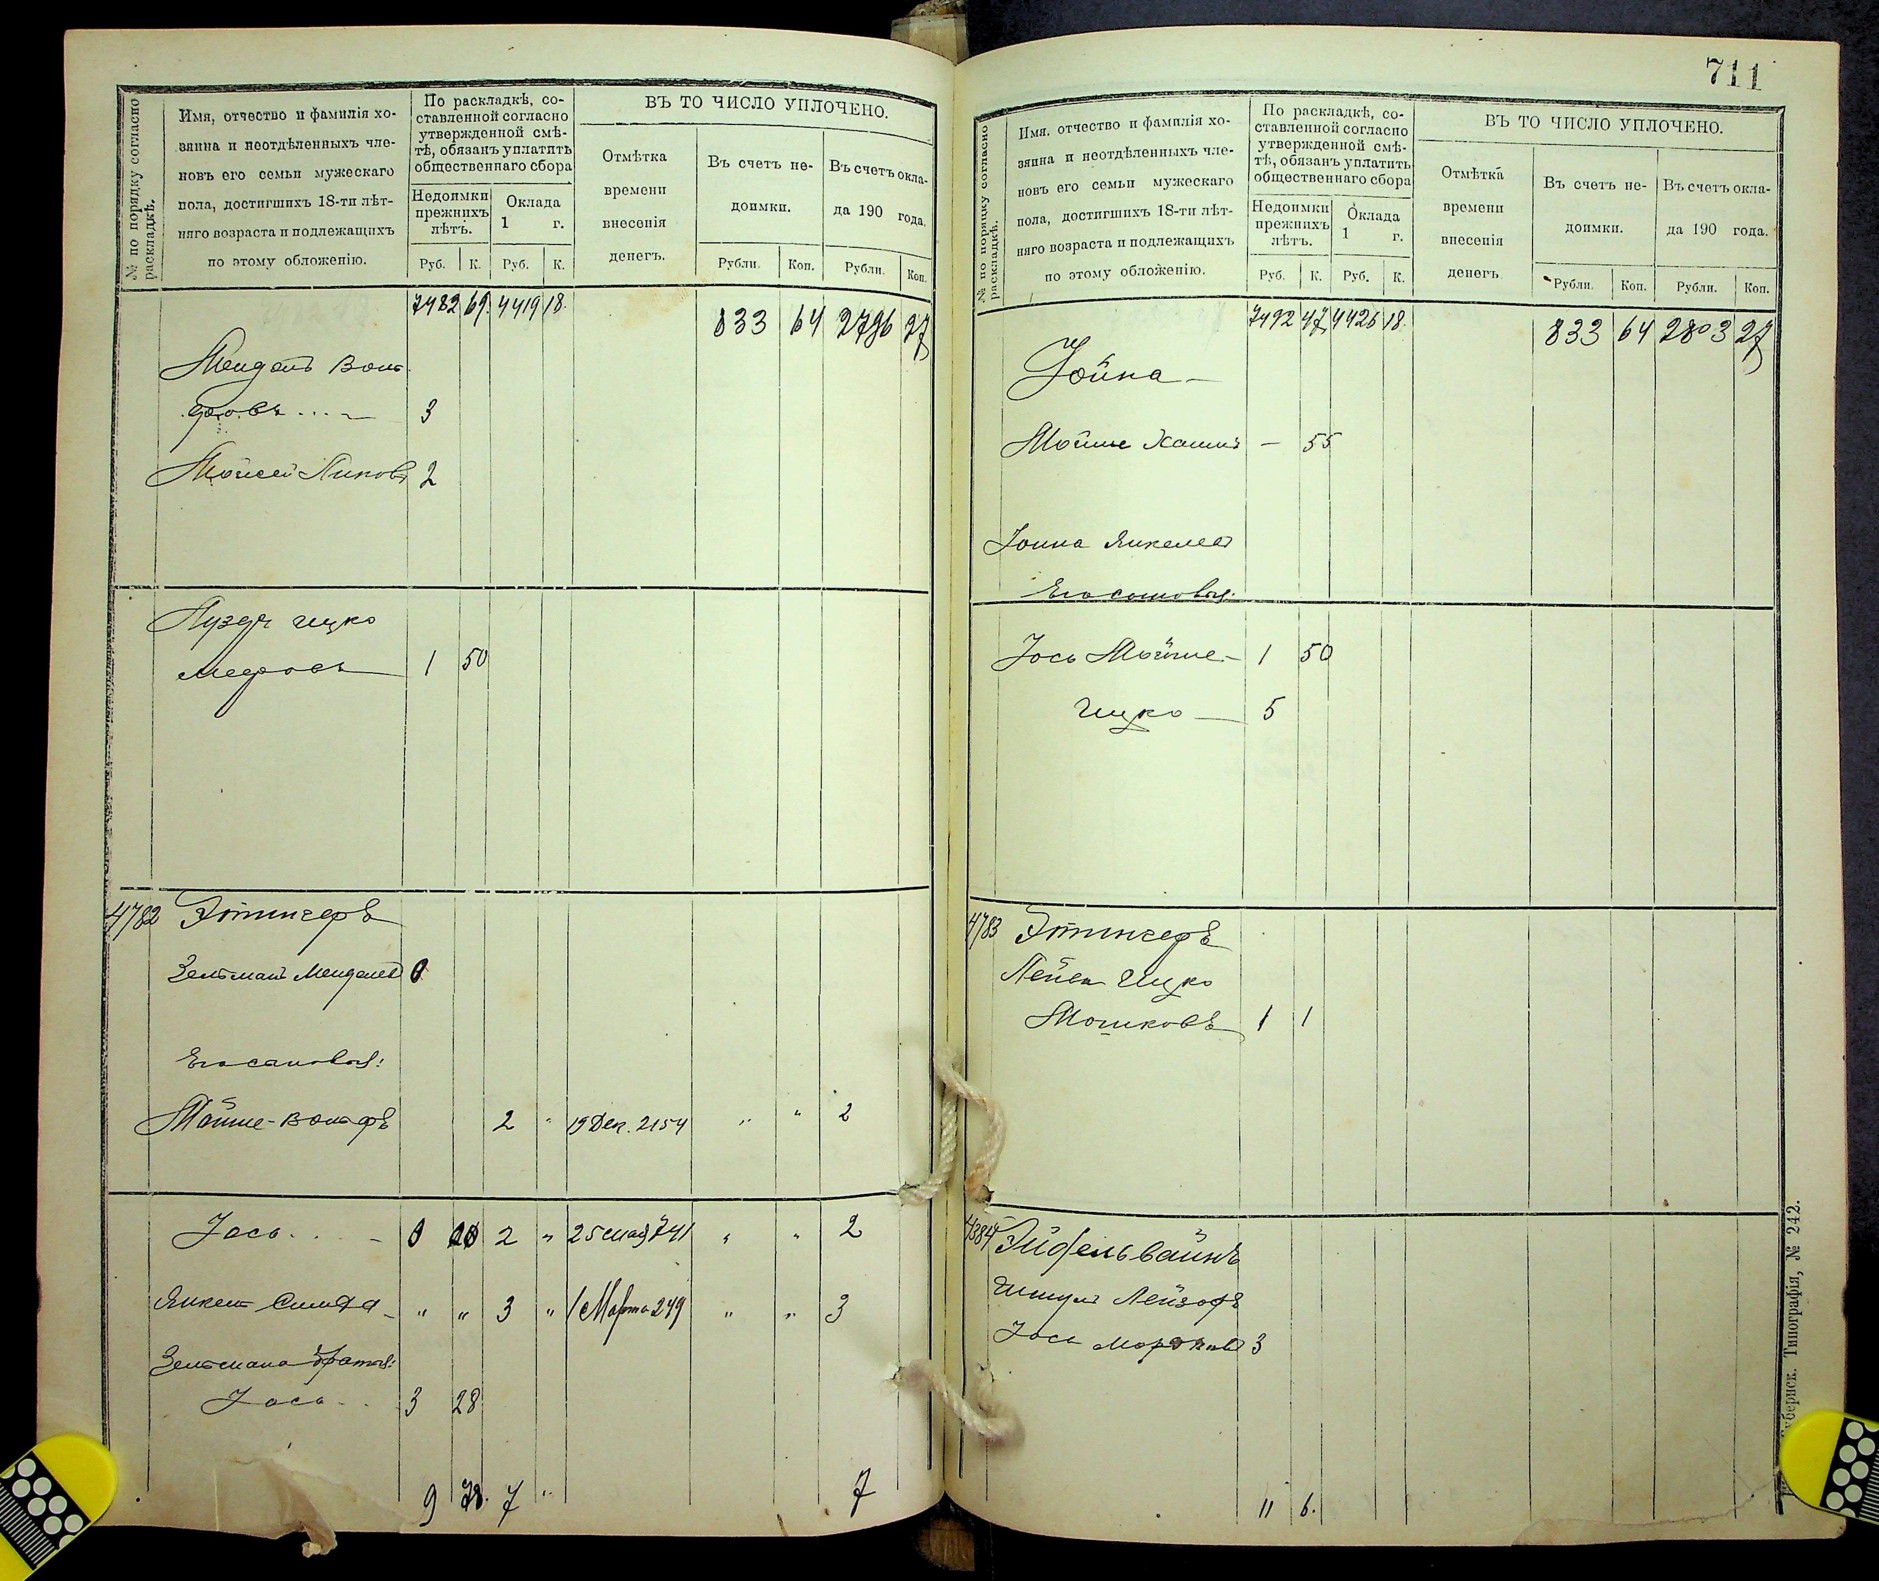 № по порядку согласно раскладкѣ.
Имя, отчество и фамилія хо-
зяина и неотдѣленныхъ чле-
новъ его семьи мужескаго
пола, достигшихъ 18-ти лѣт-
няго возраста и подлежащихъ
по этому обложенію.
По раскладкѣ, со-
ставленной согласно
утвержденной смѣ-
тѣ, обязанъ уплатить
общественнаго сбора
Недоимки прежнихъ лѣтъ.
Оклада 1 г.
Руб. К. Руб. К.
ВЪ ТО ЧИСЛО УПЛОЧЕНО.
Отмѣтка времени внесенія денегъ.
Въ счетъ не- доимки.
Въ счетъ окла- да 190 года.
Рубли. Коп. Рубли. Коп.
7482 69 4419 18 833 64 2796 27
Мендель Воль
фовъ 3
Мойсей Пинков 2
ицко
1 50
4782 Этингеръ
Зельманъ Менделев
Его сыновья:
Мойше-Вольфъ 2 " 19 Дек. 2154 " " 2
Іось 2 " 25 мая 741 " " 2
Янкель " " 3 " 1 Марта 249 " " 3
Зельмана братья:
Іось 3 28
9 78 7 " 7
711
№ по порядку согласно раскладкѣ.
Имя, отчество и фамилія хо-
зяина и неотдѣленныхъ чле-
новъ его семьи мужескаго
пола, достигшихъ 18-ти лѣт-
няго возраста и подлежащихъ
по этому обложенію.
По раскладкѣ, со-
ставленной согласно
утвержденной смѣ-
тѣ, обязанъ уплатить
общественнаго сбора
Недоимки прежнихъ лѣтъ.
Оклада 1 г.
Руб. К. Руб. К.
ВЪ ТО ЧИСЛО УПЛОЧЕНО.
Отмѣтка времени внесенія денегъ.
Въ счетъ не- доимки.
Въ счетъ окла- да 190 года.
Рубли. Коп. Рубли. Коп.
7492 47 4426 18 833 64 2803 27
Іойна —
Мойше Хаимъ — 55
Іойна Янкелев
Его сыновья:
Іось Мойше — 1 50
Ицко — 5
4783 Этингеръ
Лейба Ицко
Мошковъ 1 1
4384 Эйдельвайнъ
Лейзоръ
Іось 3
11 6.
Типографія, № 242.